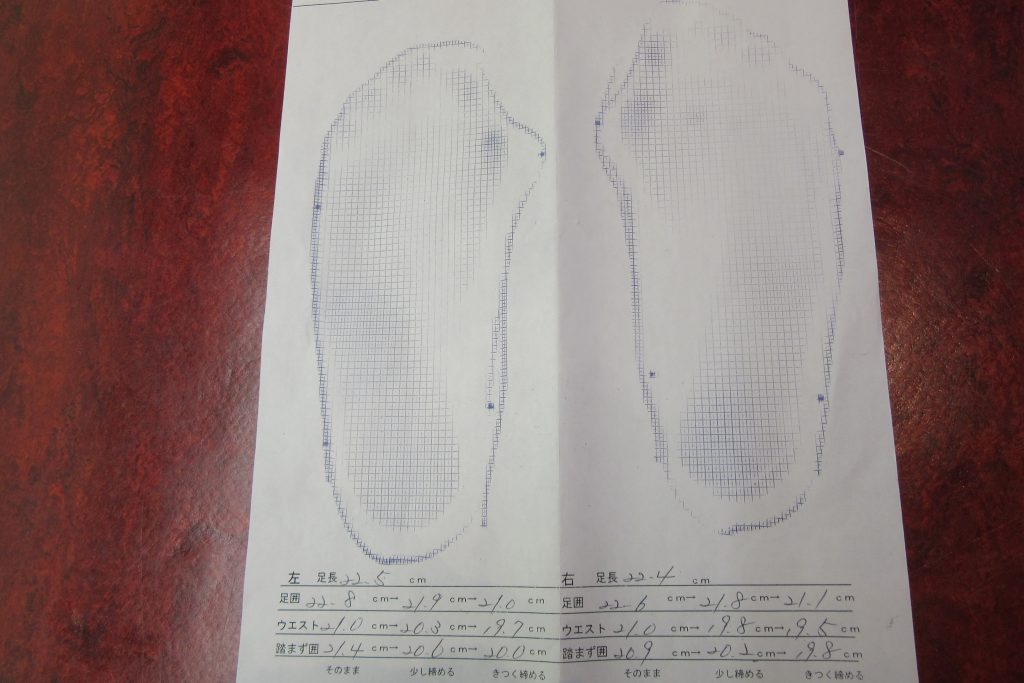 左 足長 22.5 cm
足囲 22.8 cm→ 21.9 cm→ 21.0 cm
ウエスト 21.0 cm→ 20.3 cm→ 19.7 cm
踏まず囲 21.4 cm→ 20.6 cm→ 20.0 cm
そのまま 少し締める きつく締める
右 足長 22.4 cm
足囲 22.6 cm→ 21.8 cm→ 21.1 cm
ウエスト 21.0 cm→ 19.8 cm→ 19.5 cm
踏まず囲 20.9 cm→ 20.2 cm→ 19.8 cm
そのまま 少し締める きつく締める